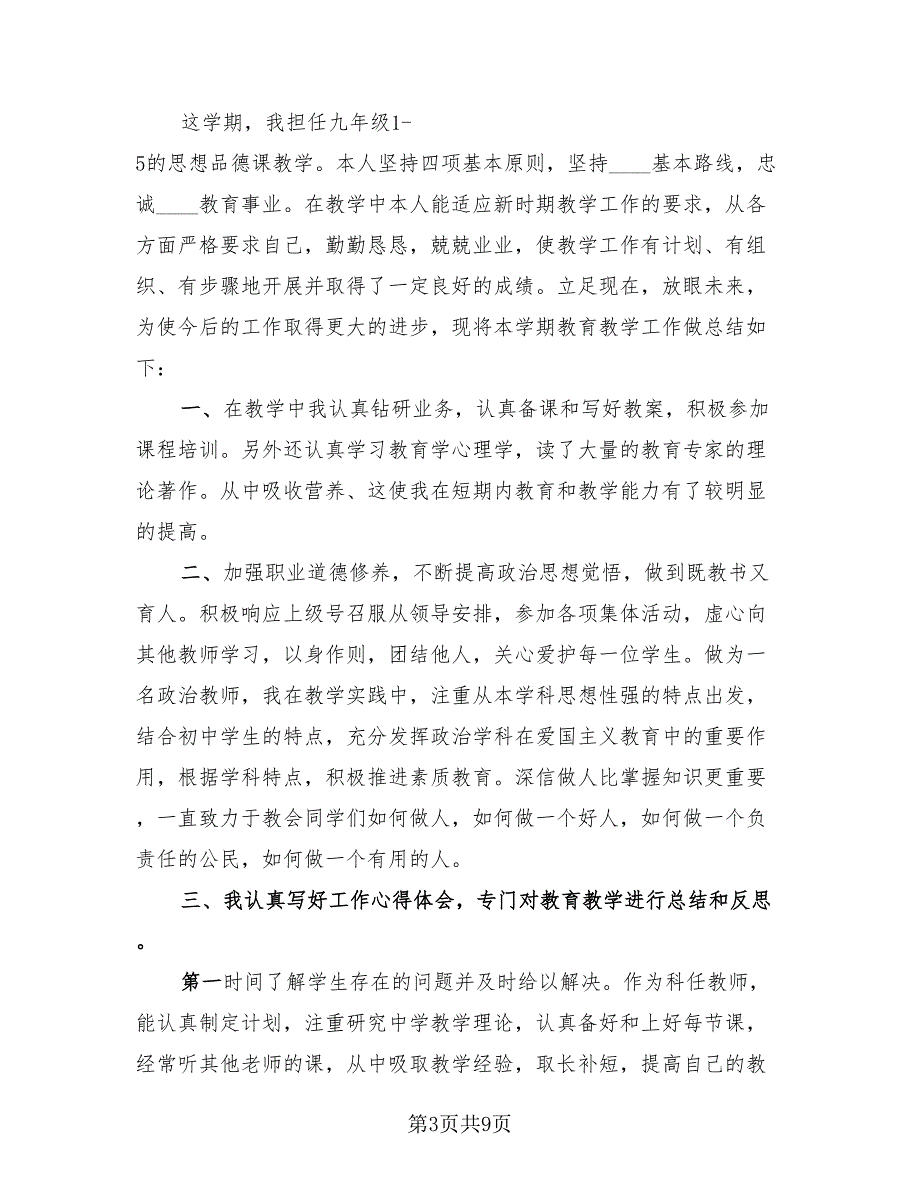 这学期，我担任九年级1-
5的思想品德课教学。本人坚持四项基本原则，坚持____基本路线，忠
诚____教育事业。在教学中本人能适应新时期教学工作的要求，从各
方面严格要求自己，勤勤恳恳，兢兢业业，使教学工作有计划、有组
织、有步骤地开展并取得了一定良好的成绩。立足现在，放眼未来，
为使今后的工作取得更大的进步，现将本学期教育教学工作做总结如
下：
一、在教学中我认真钻研业务，认真备课和写好教案，积极参加
课程培训。另外还认真学习教育学心理学，读了大量的教育专家的理
论著作。从中吸收营养、这使我在短期内教育和教学能力有了较明显
的提高。
二、加强职业道德修养，不断提高政治思想觉悟，做到既教书又
育人。积极响应上级号召服从领导安排，参加各项集体活动，虚心向
其他教师学习，以身作则，团结他人，关心爱护每一位学生。做为一
名政治教师，我在教学实践中，注重从本学科思想性强的特点出发，
结合初中学生的特点，充分发挥政治学科在爱国主义教育中的重要作
用，根据学科特点，积极推进素质教育。深信做人比掌握知识更重要
，一直致力于教会同学们如何做人，如何做一个好人，如何做一个负
责任的公民，如何做一个有用的人。
三、我认真写好工作心得体会，专门对教育教学进行总结和反思
。
第一时间了解学生存在的问题并及时给以解决。作为科任教师，
能认真制定计划，注重研究中学教学理论，认真备好和上好每节课，
经常听其他老师的课，从中吸取教学经验，取长补短，提高自己的教
第3页共9页